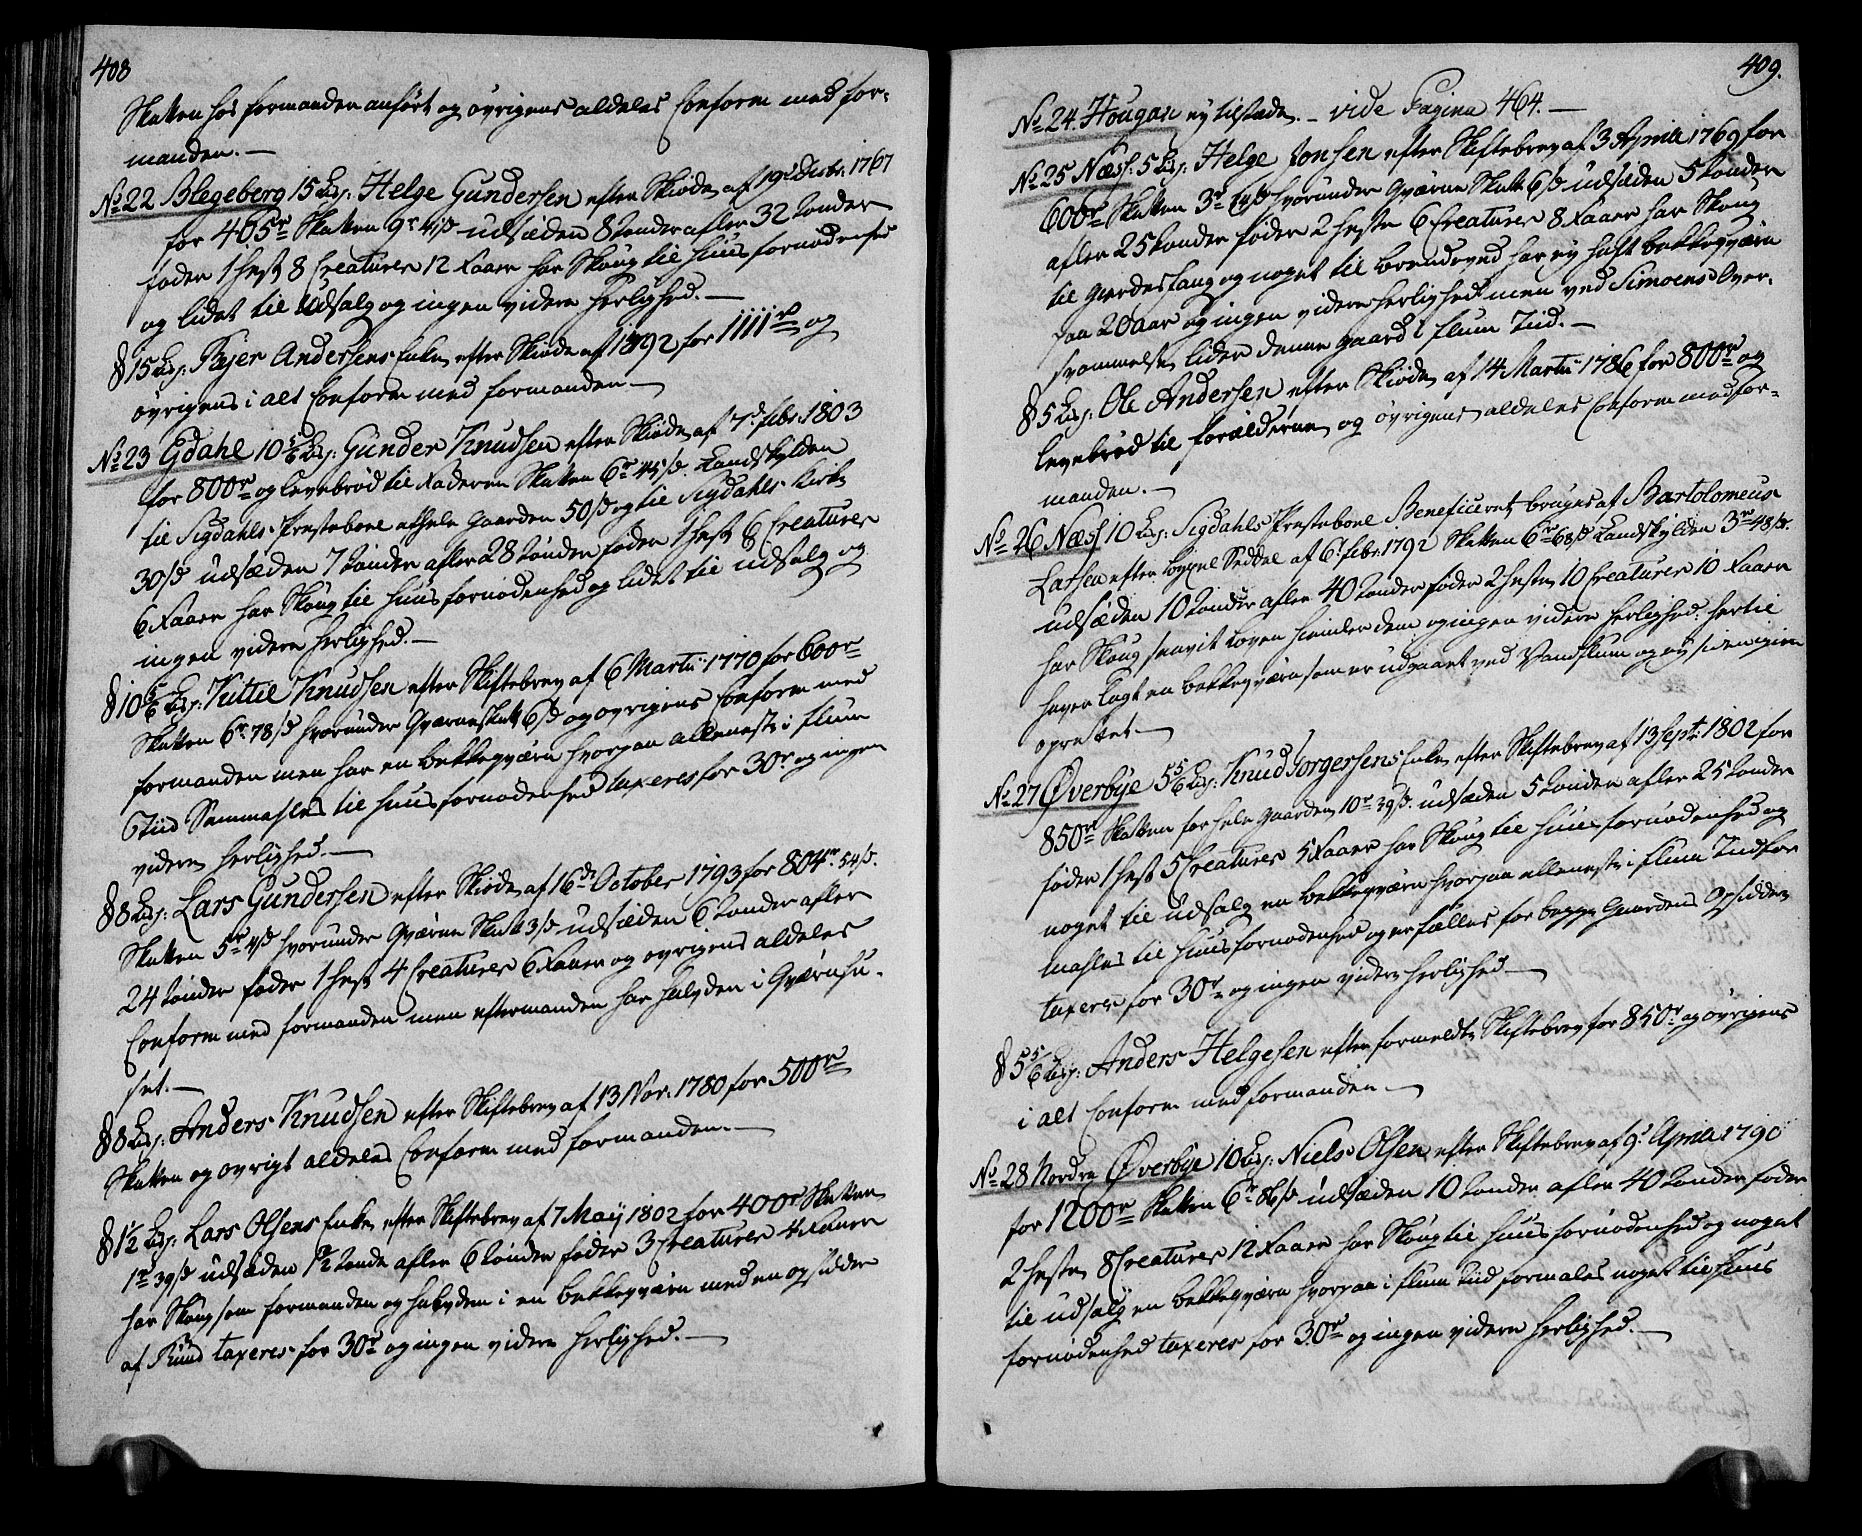 408
Skatten hos formanden anfört og övrigens aldeles Conform med for-
manden. —
No 22 Blegeberg 15 Lisp: Helge Gundersen efter Skiöde af 19de Decbr. 1767
for 405r Skatten 9r 41s udsæden 8 tönder afler 32 tönder
föder 1 hest 8 Creaturer 12 Faaer har Skoug til huus fornödenhed
og lidet til Udsalg og ingen videre herlighed. —
§ 15 Lisp: Andersens Enke efter Skiöde af 1792 for 1111r og
övrigens i alt Conform med formanden —
No 23 Egdahl 10 5/6 Lisp: Gunder Knudsen efter Skiöde af 7de febr. 1803
for 800r og levebröd til Faderen Skatten 6r 45s Landskylden
til Sigdahls Prestebole af hele gaarden 50s og til Sigdahls Kirke
30s udsæden 7 tönder afler 28 tönder föder 1 hest 6 Creaturer
6 Faaer har Skoug til huus fornödenhed og lidet til udsalg og
ingen videre herlighed. —
§ 10 5/6 Lisp: Kittil Knudsen efter Skiftebrev af 6 Martii 1770 for 600r
Skatten 6r 78s hvorunder Qværneskatt 6s og övrigens Conform med
formanden men har en bekkeqværn hvorpaa alleneste i flum
Tiid Sammahles til huus fornödenhed taxeres for 30r og ingen
videre herlighed. —
§ 8 Lisp: Lars Gundersen efter Skiöde af 16de October 1793 for 804r 54s.
Skatten 5r 4s hvorunder Qværne Skatt 3s udsæden 6 tönder afler
24 tönder föder 1 hest 4 Creaturer 6 Faaer og övrigens aldeles
Conform med formanden men eftermanden har halvden i Qværnhu-
set. —
§ 8 Lisp: Anders Knudsen efter Skiftebrev af 13 Nov. 1780 for 500r
Skatten og övrigt aldeles Conform med formanden. —
§ 1½ Lisp: Lars Olsens Enke efter Skiftebrev af 7 Maij 1802 for 400r Skatten
1r 39s udsæden 1½ tönde afler 6 tönder föder 3 Creaturer 4 Faaer
har Skoug som formanden og halvden i en bekkeqværn med en opsidder
af Rund taxeres for 30r og ingen videre herlighed. —
409.
No 24. Hougan ey tilstæde. – vide Pagina 464. —
No 25 Næss: 5 Lisp: Helge Jonsen efter Skiftebrev af 3 Aprill 1769 for
600r Skatten 3r 14s hvorunder Qværne Skatt 6s udsæden 5 tönder
afler 25 tönder föder 2 heste 6 Creaturer 8 Faaer har Skoug
til gierdesfang og noget til brendeved har ey haft bekkeqværn
paa 20 aar og ingen videre herlighed men ved Simoens Over-
svommelse lider denne gaard i flum Tiid. —
§ 5 Lisp: Ole Andersen efter Skiöde af 14 Martii 1786 for 800r og
levebröd til forælderne og övrigens aldeles Conform med for-
manden. —
No 26 Næss 10 Lisp: Sigdahls Prestebole Beneficeret bruges af Bartolomeus
Larsen efter bygsel Seddel af 6t febr. 1792 Skatten 6r 68s Landskylden 3r 48s.
udsæden 10 tönder afler 40 tönder föder 2 heste 10 Creaturer 10 Faaer
har Skoug saavit loven hiemler dem og ingen videre herlighed. hertil
haver lagt en bekkeqværn som er udgaaet ved Vandflum og ey siden igien
oprettet —
No 27 Överbye 5 5/6 Lisp: Knud Torgersens Enke efter Skiftebrev af 13 Septr. 1802 for
850r Skatten for hele gaarden 10r 39s. udsæden 5 tönder afler 25 tönder
föder 1 hest 5 Creaturer 5 Faaer har Skoug til huus fornödenhed og
noget til udsalg en bekkeqværn hvorpaa alleneste i flum Tiid for
mahles til huus fornödenhed og er fælles for begge Gaardens Opsidder
taxeres for 30r og ingen videre herlighed —
§ 5 5/6 Lisp: Anders Helgesen efter formeldte Skiftebrev for 850r og övrigens
i alt Conform med formanden. —
No 28 Nordre Överbye 10 Lisp: Niels Olsen efter Skiftebrev af 9t Aprill 1790
for 1200r Skatten 6r 86s udsæden 10 tönder afler 40 tönder föder
2 heste 8 Creaturer 12 Faaer har Skoug til huus fornödenhed og noget
til udsalg en bekkeqværn hvorpaa i flum tiid formales noget til Huus
fornödenhed taxeres for 30r og ingen videre herlighed. —